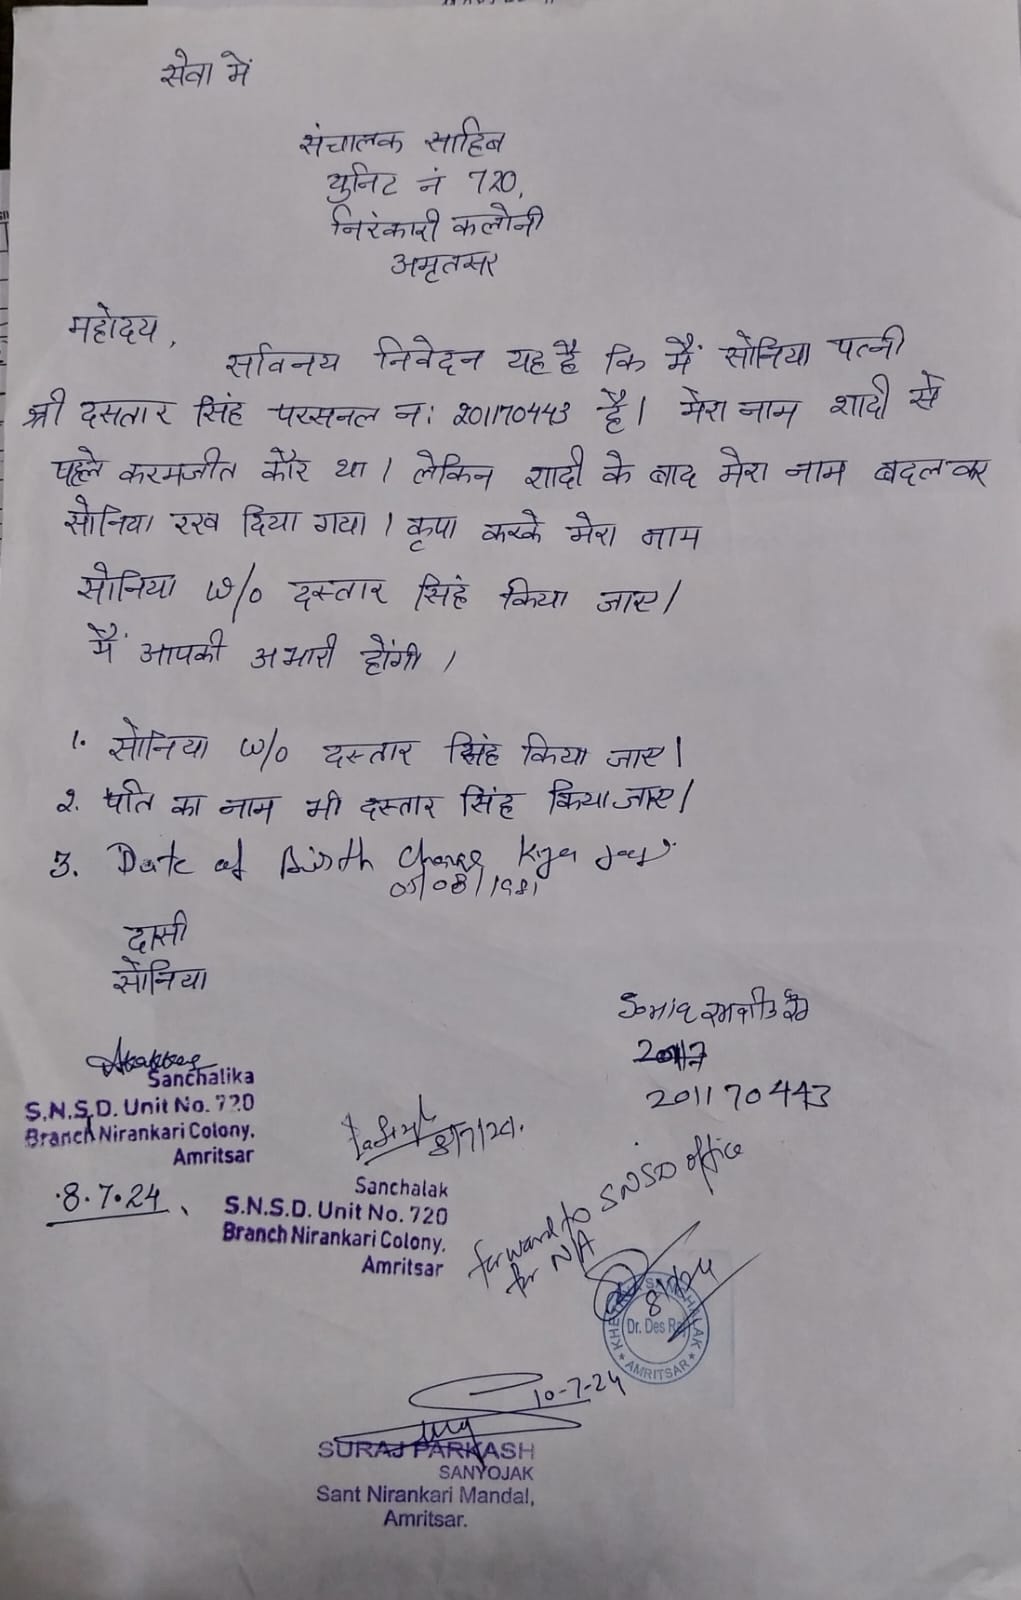 सेवा में
संचालक साहिब
युनिट नं 720,
निरंकारी कलोनी
अमृतसर
महोदय,
सविनय निवेदन यह है कि मैं सोनिया पत्नी
श्री दसतार सिंह परसनल न: 201170443 है। मेरा नाम शादी से
पहले करमजीत कौर था। लेकिन शादी के बाद मेरा नाम बदल कर
सोनिया रख दिया गया। कृपा करके मेरा नाम
सोनिया w/o दस्तार सिहं किया जाए।
मैं आपकी अभारी होंगी।
1. सोनिया w/o दस्तार सिंह किया जाए।
2. पति का नाम भी दस्तार सिंह किया जाए।
3. Date of Birth Change Kiya jaey
05/08/1981
दासी
सोनिया
201170443
Sanchalika
S.N.S.D. Unit No. 720
Branch Nirankari Colony,
Amritsar
8.7.24
8/7/24.
Sanchalak
S.N.S.D. Unit No. 720
Branch Nirankari Colony,
Amritsar
forward to SNSD office
for N/A
8/7/24
KHETRIYA SANCHALAK
Dr. Des Raj
AMRITSAR
10-7-24
SURAJ PARKASH
SANYOJAK
Sant Nirankari Mandal,
Amritsar.